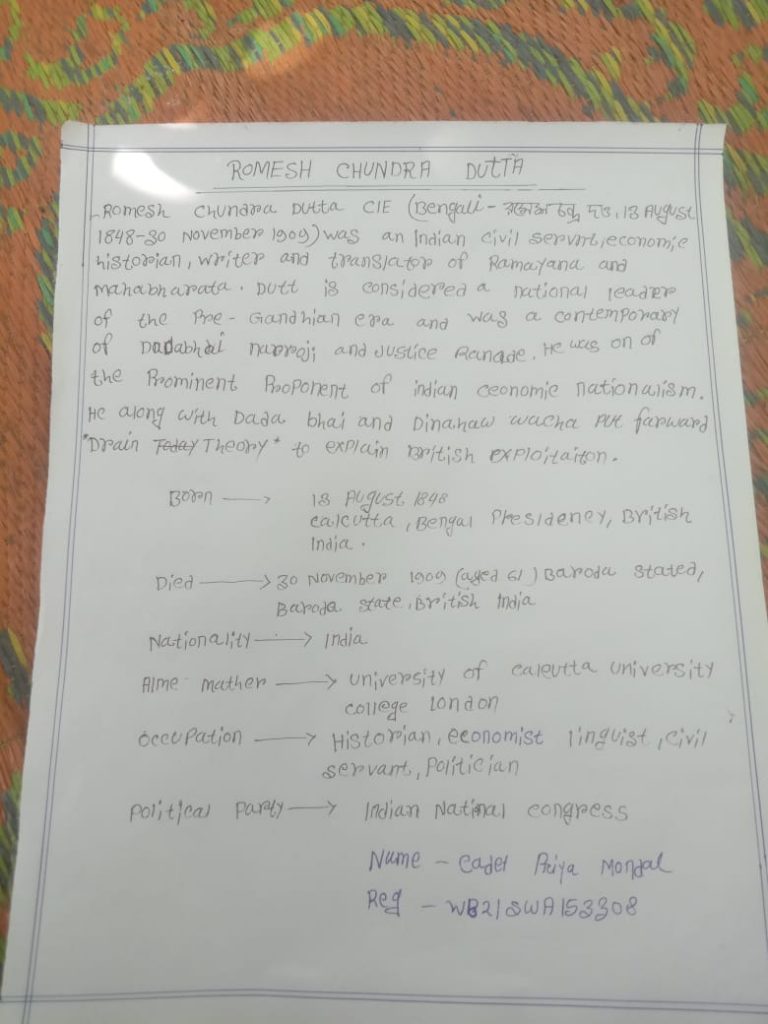 ROMESH CHUNDRA DUTTA
Romesh Chundra Dutta CIE (Bengali - রমেশ চন্দ্র দত্ত, 13 August
1848-30 November 1909) was an Indian civil servant, economic
historian, writer and translator of Ramayana and
Mahabharata. Dutt is considered a national leader
of the Pre-Gandhian era and was a contemporary
of Dadabhai narroji and Justice Ranade. He was on of
the Prominent Proponent of indian ceonomic nationalism.
He along with Dada bhai and Dinahaw wacha put farward
"Drain Theory" to explain British exploitaiton.
Born → 13 August 1848
Calcutta, Bengal Presideney, British
India.
Died → 30 November 1909 (aged 61) Baroda Stated,
Baroda state, British India
Nationality → India
Alme mather → university of calcutta university
college london
occupation → Historian, economist linguist, civil
servant, politician
political party → Indian Natinal congress
Name - Cadet Priya Mondal
Reg - WB21SWA153308